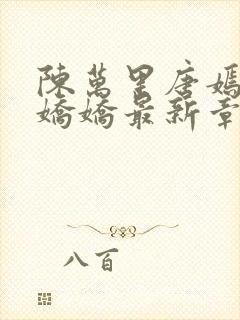 陳萬里唐嫣
嬌嬌最新章
八百